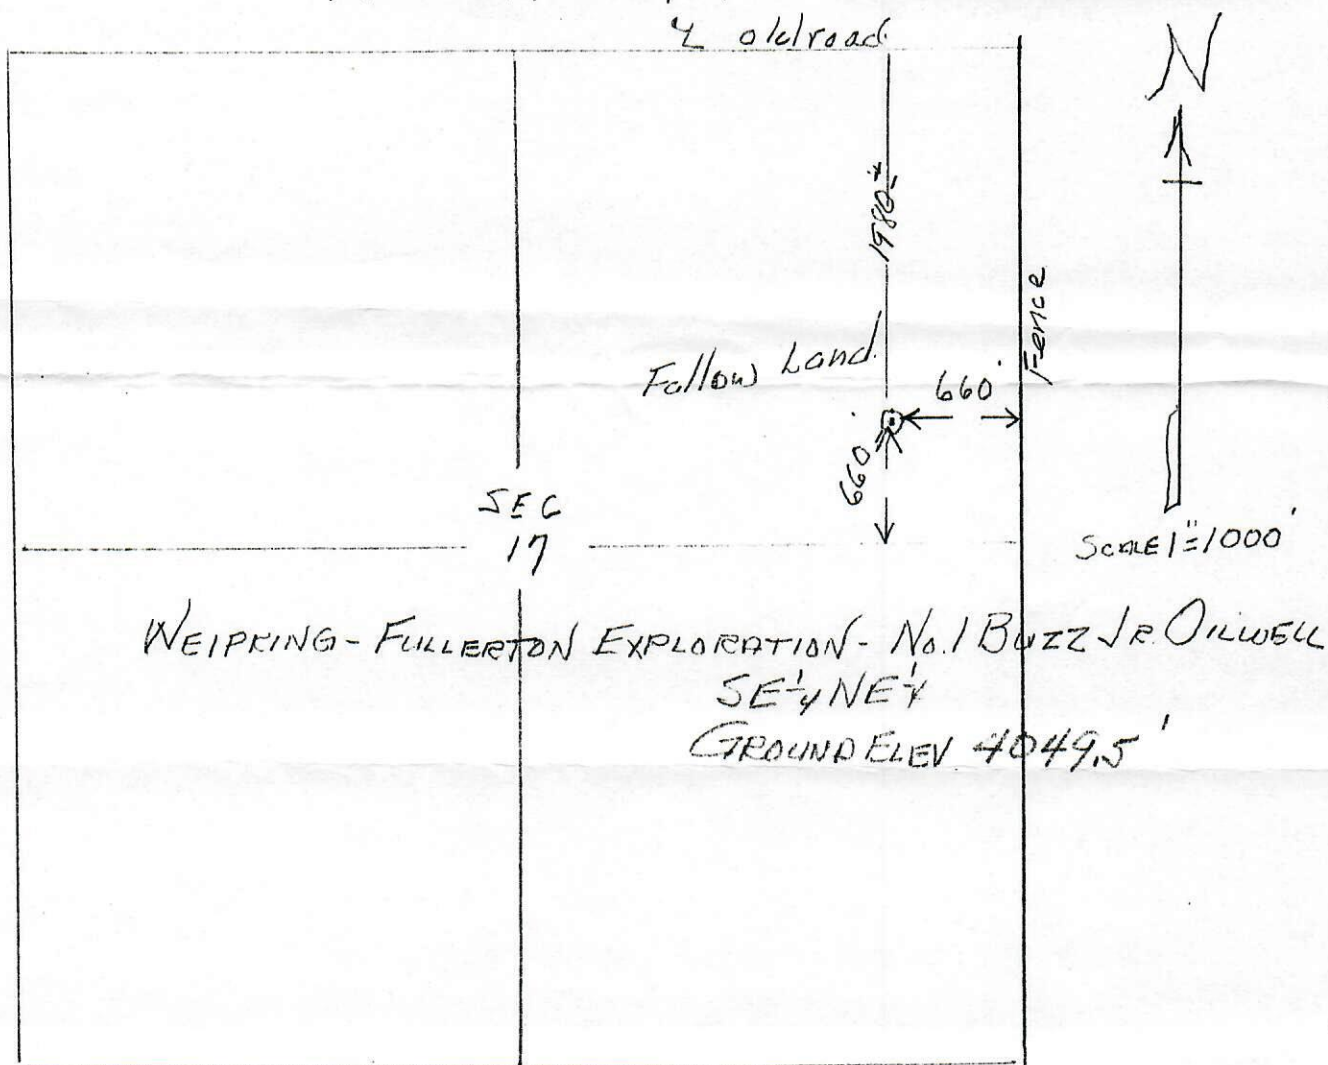 ℄ old road
N
1980'±
Fence
Fallow Land
660'
660'
SEC
17
SCALE 1"=1000'
WEIPKING-FULLERTON EXPLORATION-No.1 BUZZ JR. OILWELL
SE¼ NE¼
GROUND ELEV 4049.5'